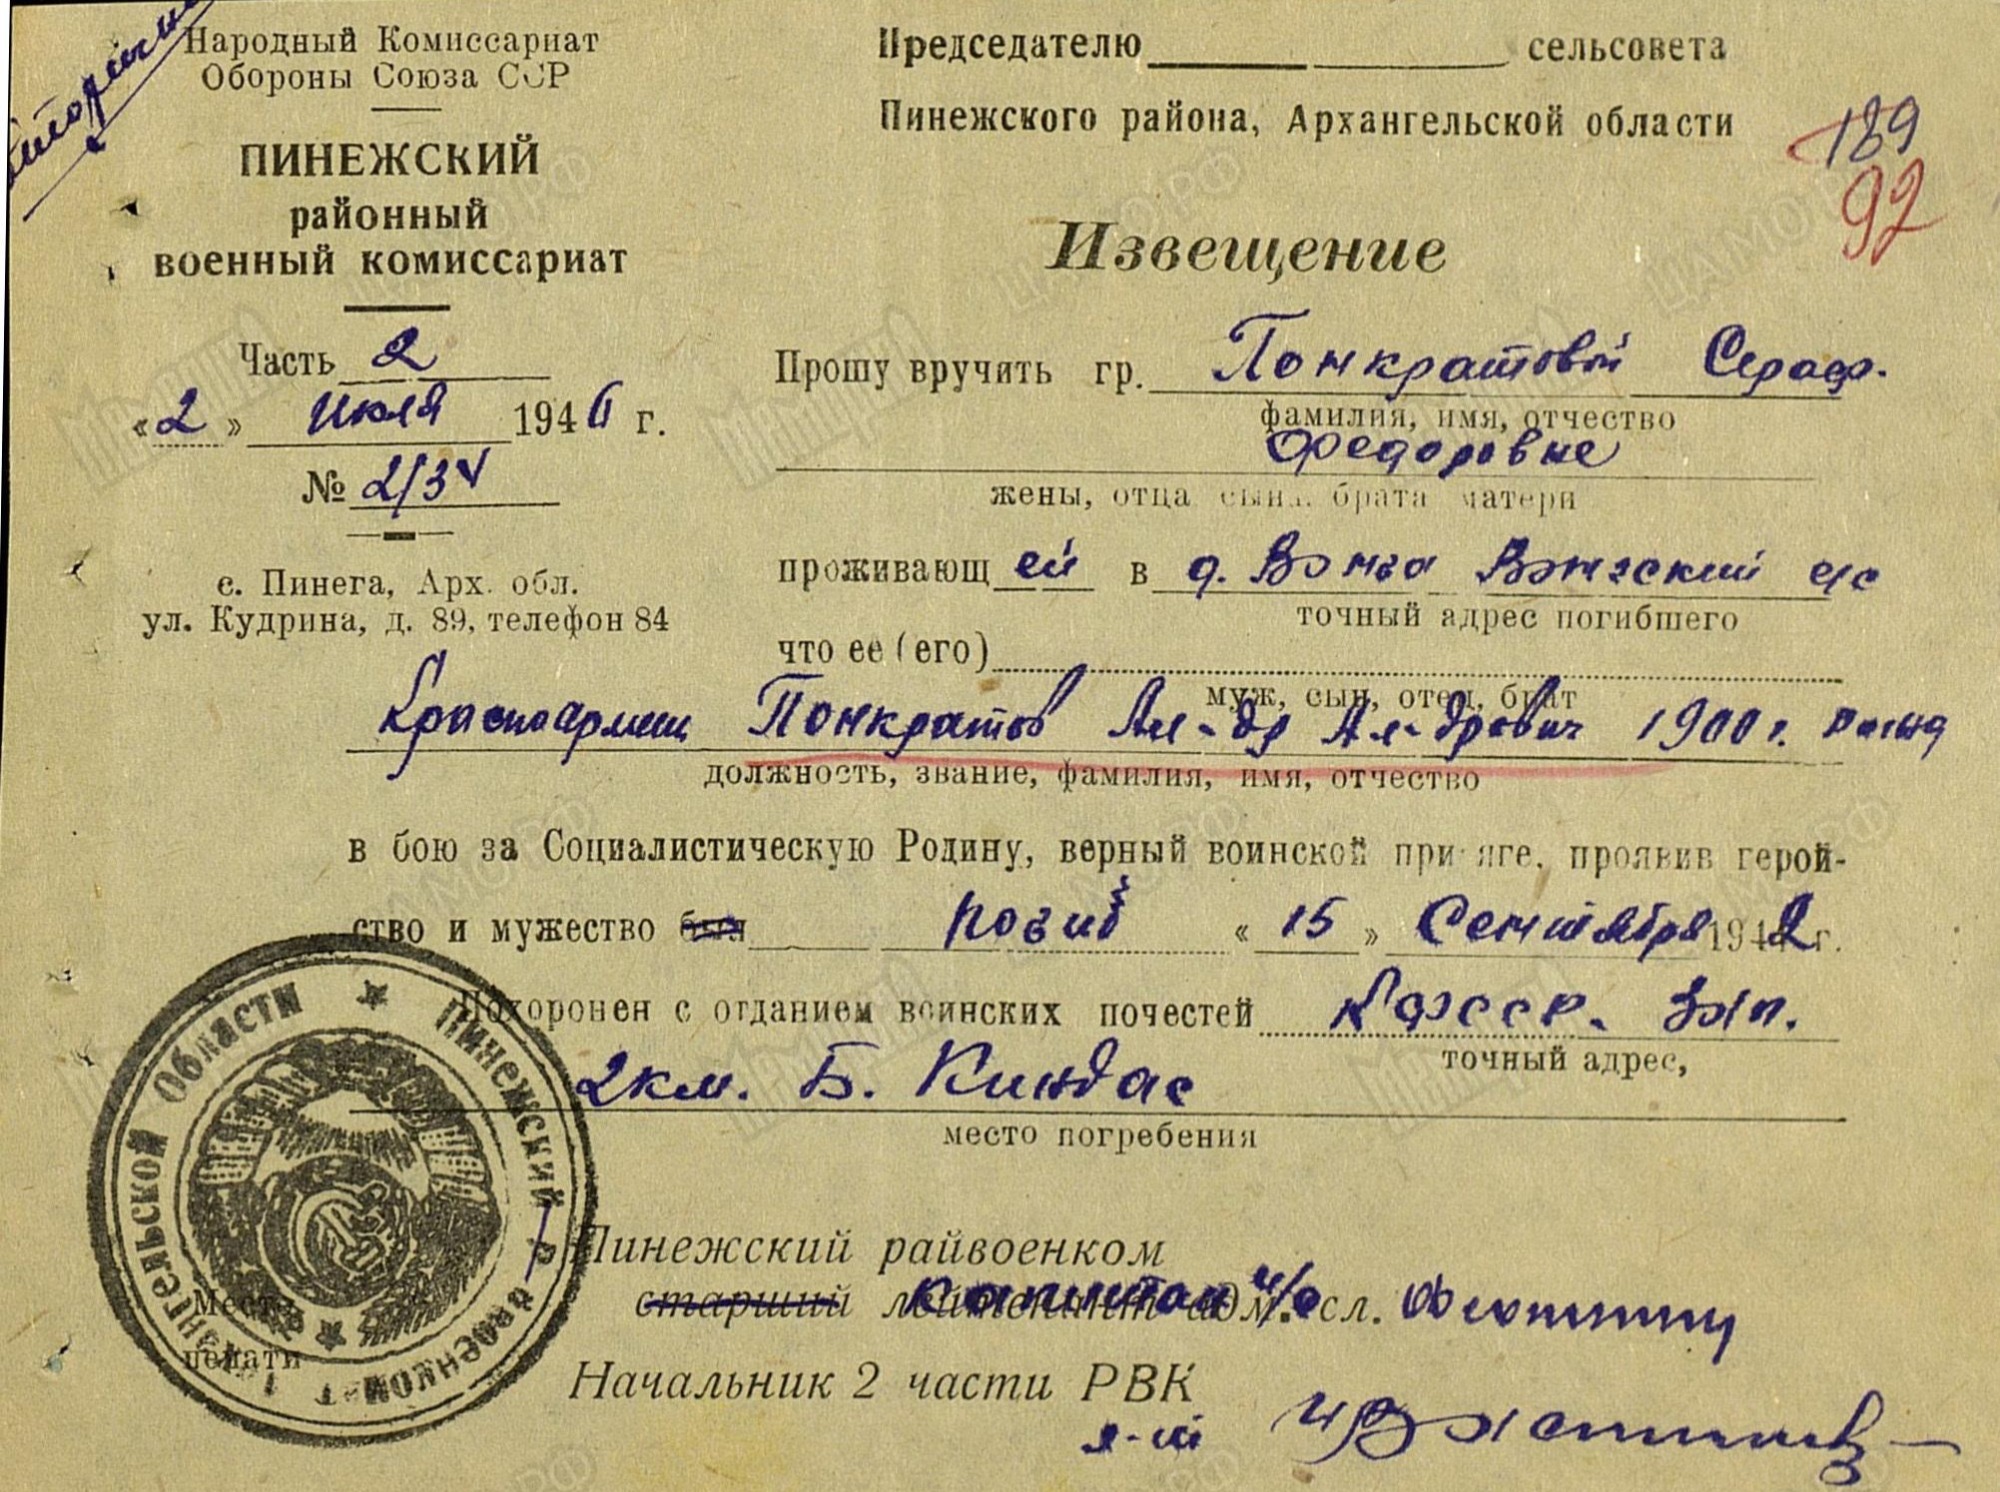 Народный Комиссариат
Обороны Союза ССР
ПИНЕЖСКИЙ
районный
военный комиссариат
Часть 2
«2» июля 1946 г.
№ 2/34
с. Пинега, Арх. обл.
ул. Кудрина, д. 89, телефон 84
Председателю сельсовета
Пинежского района, Архангельской области
189
92
Извещение
Прошу вручить гр. Понкратовой Сераф.
фамилия, имя, отчество
Федоровне
жены, отца сына, брата матери
проживающ ей в д. Вонга Вонгский с/с
точный адрес погибшего
что ее (его)
муж, сын, отец, брат
Красноармеец Понкратов Ал-др Ал-дрович 1900 г. рожд
должность, звание, фамилия, имя, отчество
в бою за Социалистическую Родину, верный воинской присяге, проявив герой-
ство и мужество был погиб «15» Сентября 1942 г.
Похоронен с отданием воинских почестей КФССР. зап.
точный адрес,
2 км. Б. Киндас
место погребения
Пинежский райвоенком
старший лейтенант капитан адм. сл.
Начальник 2 части РВК
Место
печати
Пинежский военком-т Архангельской Области
МЕМОРИАЛ
ЦАМО РФ